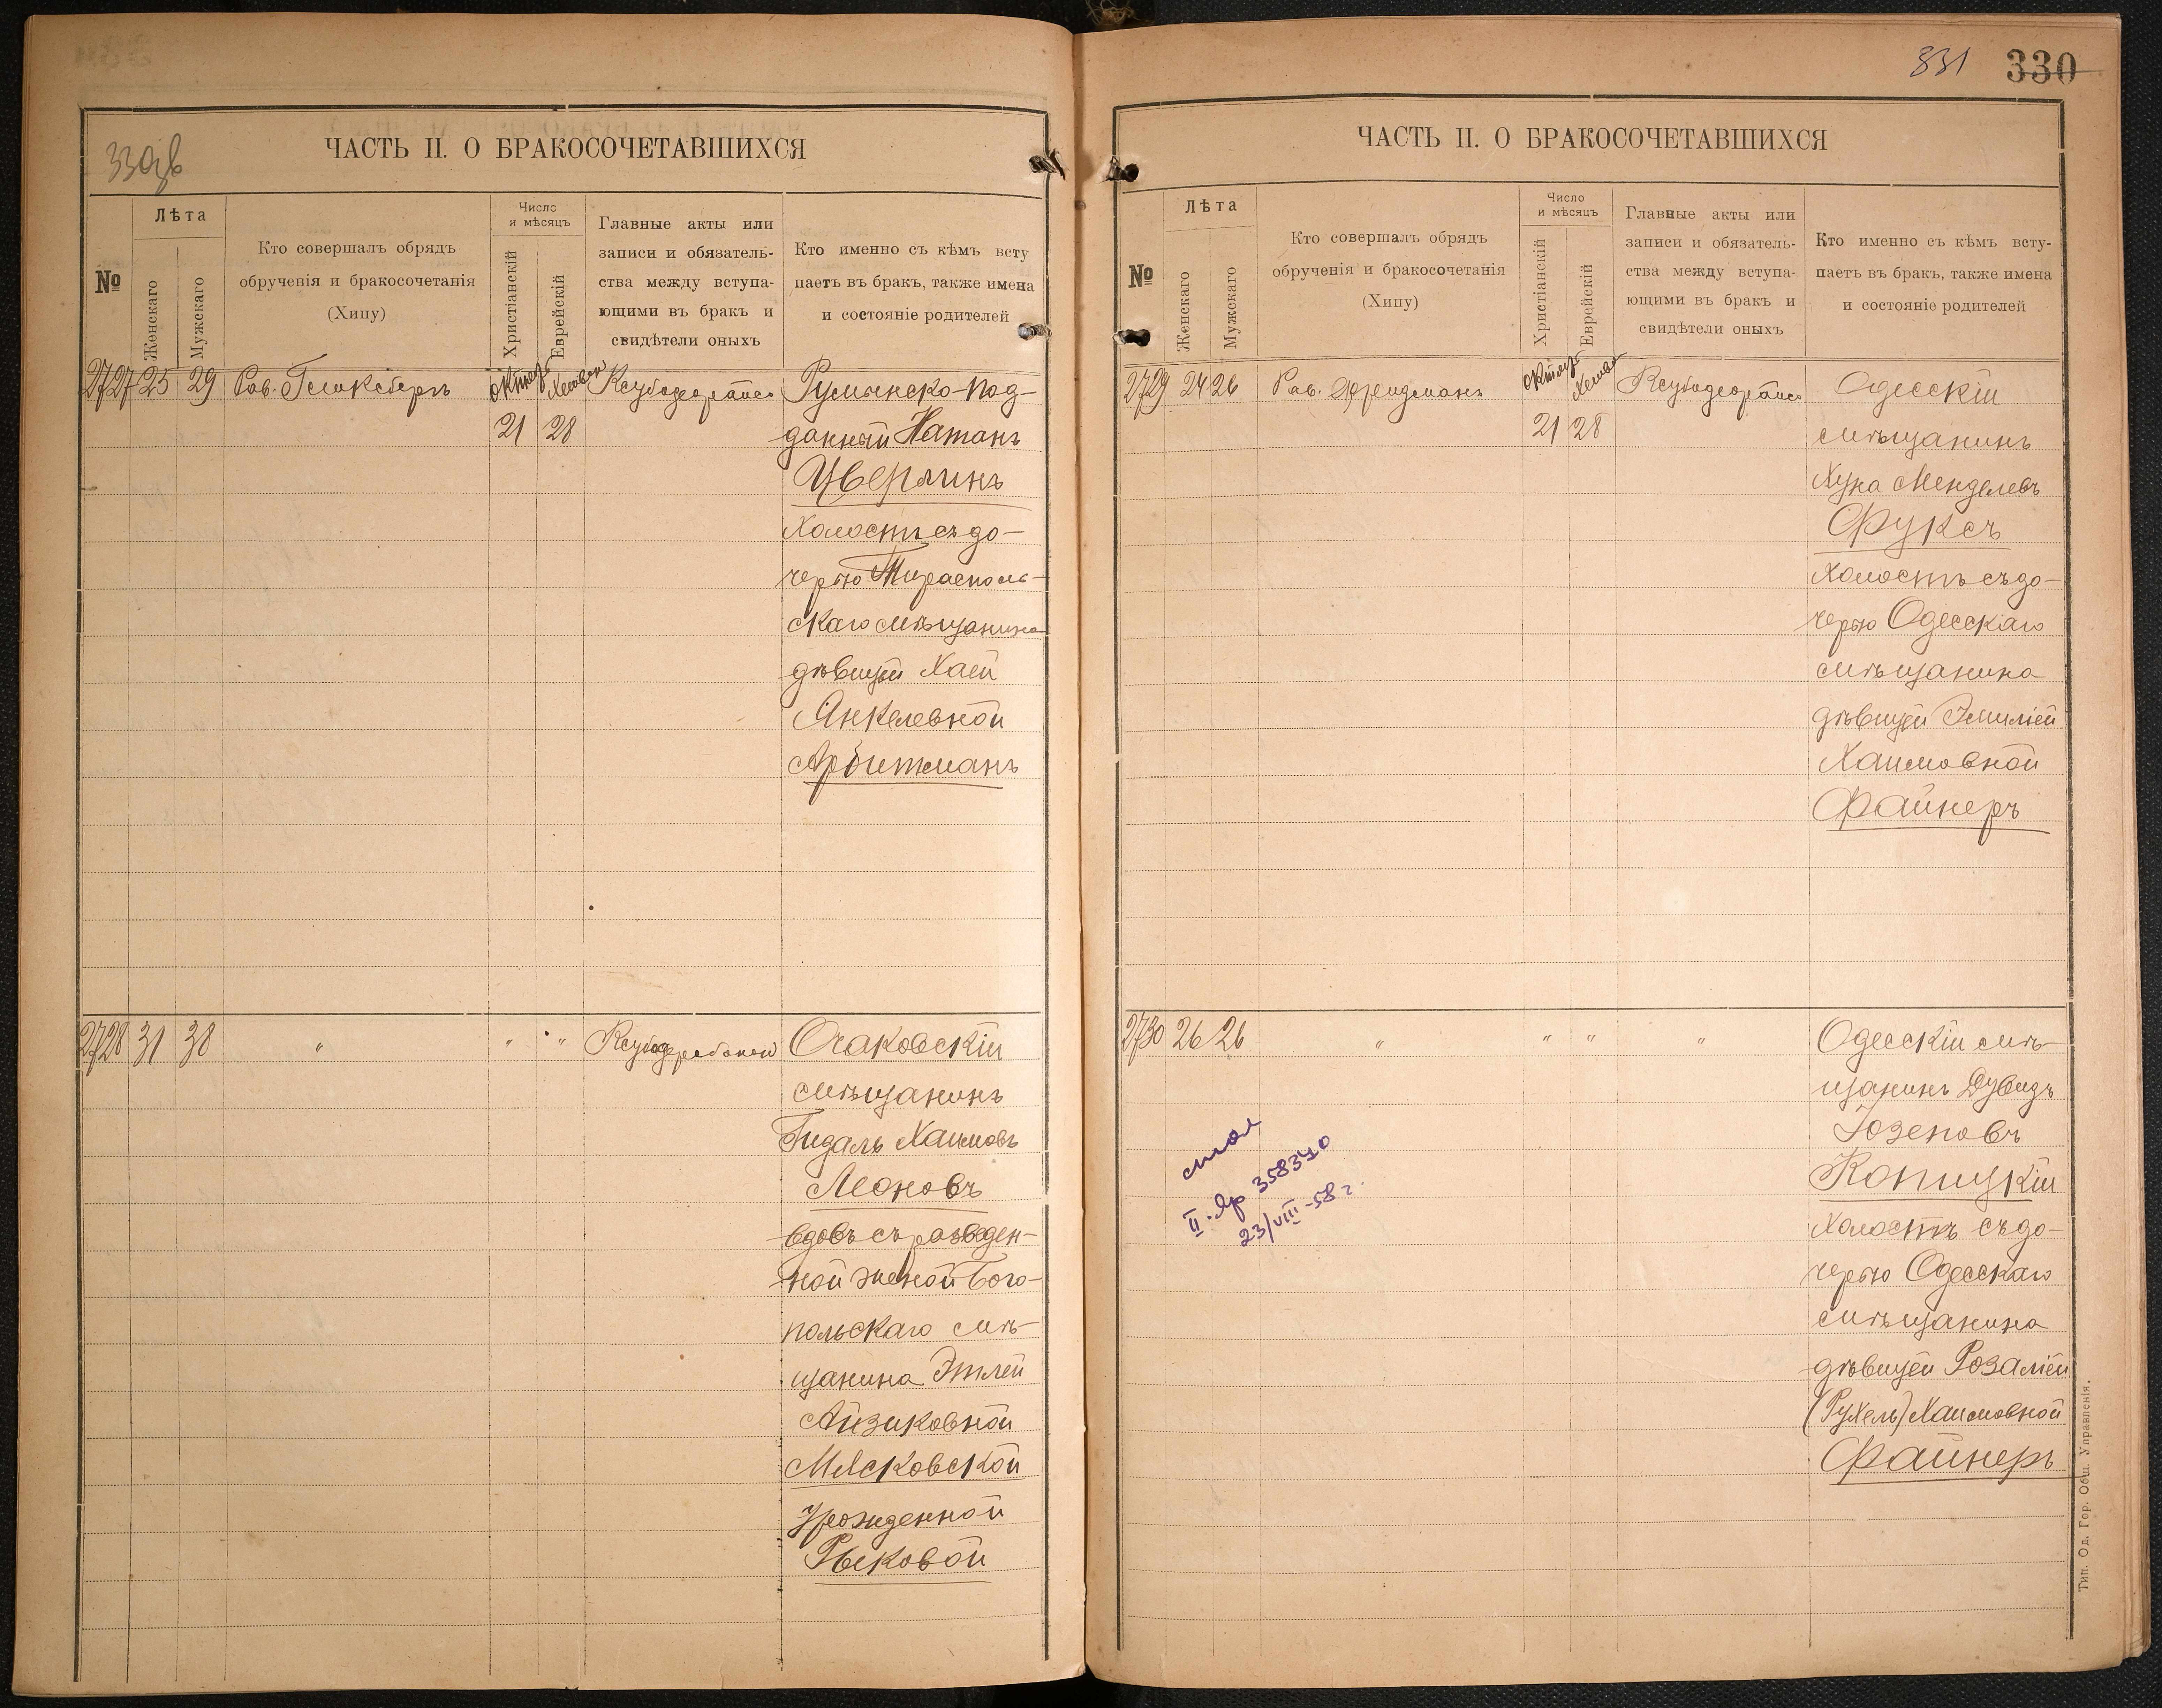 330об
ЧАСТЬ II. О БРАКОСОЧЕТАВШИХСЯ
№
Лѣта
Женскаго
Мужскаго
Кто совершалъ обрядъ
обрученія и бракосочетанія
(Хипу)
Число
и мѣсяцъ
Христіанскій
Еврейскій
Главные акты или
записи и обязатель-
ства между вступа-
ющими въ бракъ и
свидѣтели оныхъ
Кто именно съ кѣмъ всту
паетъ въ бракъ, также имена
и состояніе родителей
2727 25 29 Рав. октяб Хешван Румынско-под-
21 28 данный Натанъ
Цверлинъ
холостъ съ до-
черью Тирасполь-
скаго мѣщанина
дѣвицей Хаей
Янкелевной
Арбитманъ
2728 31 38 " " " Очаковскій
мѣщанинъ
Гидаль Хаимовъ
Леоновъ
вдовъ съ разведен-
ной женой Бого-
польскаго мѣ-
щанина Этлей
Айзиковной
Мясковской
Урожденной
Рысковой
331 330
ЧАСТЬ II. О БРАКОСОЧЕТАВШИХСЯ
№
Лѣта
Женскаго
Мужскаго
Кто совершалъ обрядъ
обрученія и бракосочетанія
(Хипу)
Число
и мѣсяцъ
Христіанскій
Еврейскій
Главные акты или
записи и обязатель-
ства между вступа-
ющими въ бракъ и
свидѣтели оныхъ
Кто именно съ кѣмъ всту-
паетъ въ бракъ, также имена
и состояніе родителей
2729 24 26 Рав. Фридманъ октяб Хешван Одесскій
21 28 мѣщанинъ
Хуна Менделевъ
Фуксъ
холостъ съ до-
черью Одесскаго
мѣщанина
дѣвицей Эмиліей
Хаимовной
Файнеръ
2730 26 26 " " " " Одесскій мѣ-
щанинъ Дувидъ
Іозеповъ
Копицкій
холостъ съ до-
черью Одесскаго
мѣщанина
дѣвицей Розаліей
(Рухель) Хаимовной
Файнеръ
II 358340
23/VIII-58 г.
Тип. Од. Гор. Общ. Управленія.